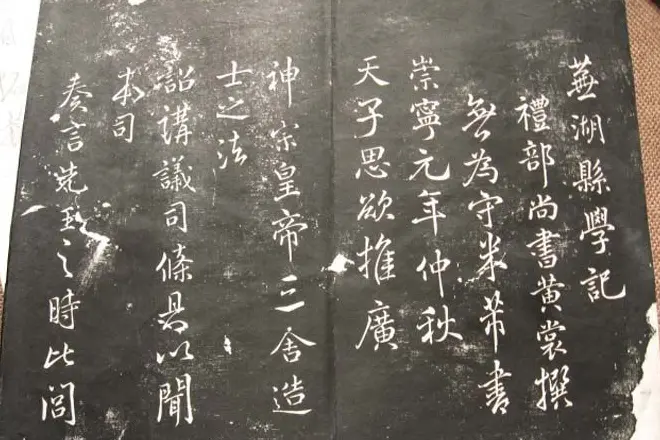 蕪湖縣學記
禮部尚書黄裳撰
無為守米芾書
崇寧元年仲秋
天子思欲推廣
神宗皇帝三舍造
士之法
詔講議司條具以聞
本司
奏言先王之時比閭